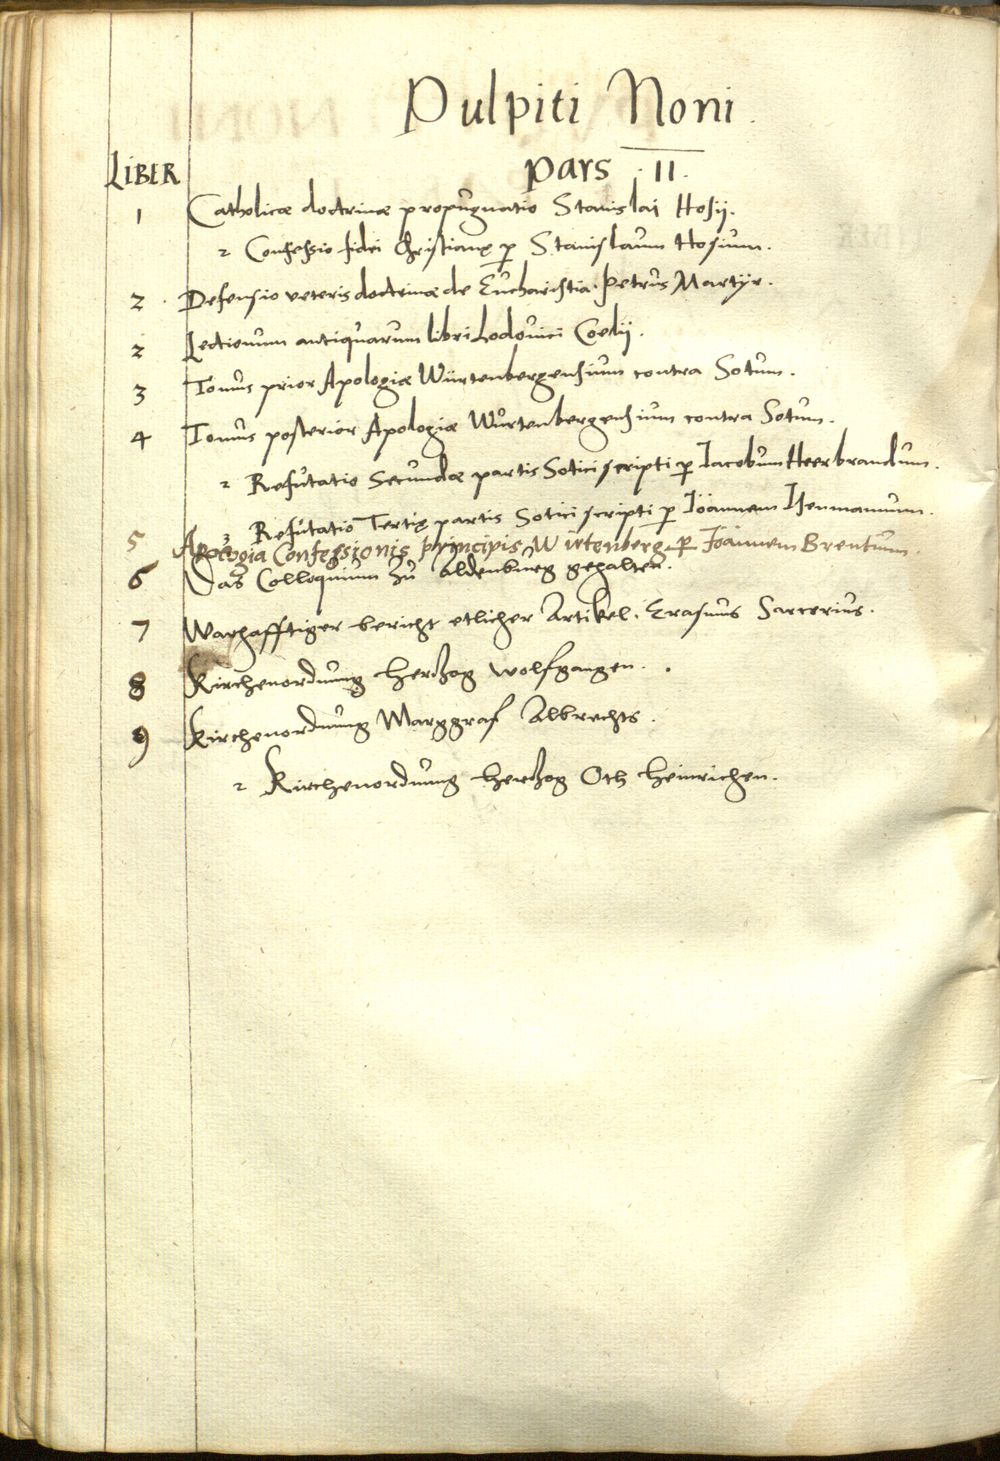 Pulpiti Noni.
LIBER
pars .II.
1 Catholicæ doctrinæ propugnatio Stanislai Hosij.
2 Confessio fidei Christianę p Stanislaum Hosium.
2 Defensio veteris doctrinæ de Eucharistia. Petrus Martÿr.
2 Lectionum antiquarum libri Lodouici Coelij.
3 Tomus prior Apologiæ Würtenbergensium contra Sotum.
4 Tomus posterior Apologiæ Würtenbergensium contra Sotum.
2 Refutatio Secundæ partis Sotici scripti p Iacobum Heerbrandum.
3 Refutatio Tertię partis Sotici scripti p Ioannem Isenmannum.
5 Apologia Confessionis principis Wirtenberg. p Ioannem Brentium.
6 Das Colloquium zu Aldenburg gehalten.
7 Warhafftiger bericht etlicher Artikel. Erasmus Sarcerius.
8 Kirchenordnung Hertzog Wolfgangen.
9 Kirchenordnung Marggraf Albrechts.
2 Kirchenordnung Hertzog Oth Heinrichen.